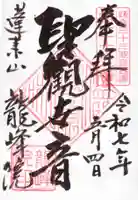 奉拝
令和七年
一月四日
聖観世音
蓬莱山
龍峰院